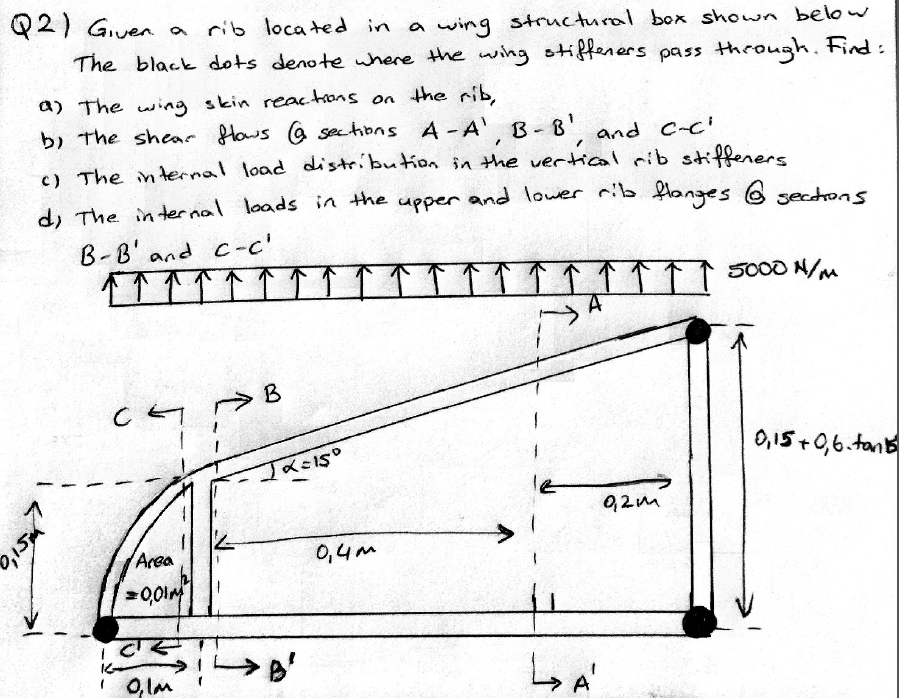 Q2) Given a rib located in a wing structural box shown below
The black dots denote where the wing stiffeners pass through. Find:
a) The wing skin reactions on the rib,
b) The shear flows @ sections A-A', B-B', and C-C'
c) The internal load distribution in the vertical rib stiffeners
d) The internal loads in the upper and lower rib flanges @ sections
B-B' and C-C'
5000 N/m
A
B
C
α=15°
0,15+0,6.tan15
0,2m
0,4m
0,15m
Area
=0,01m²
C'
B'
A'
0,1m